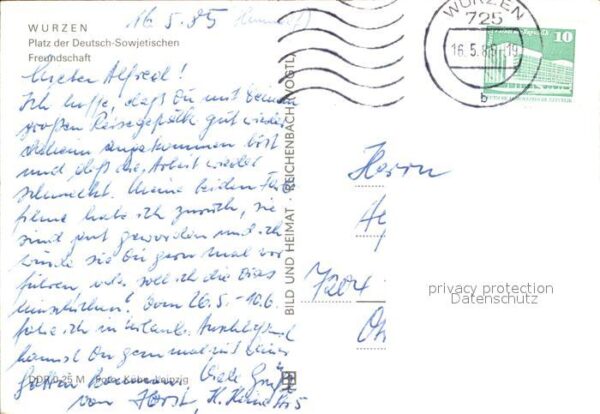 WURZEN
Platz der Deutsch-Sowjetischen
Freundschaft
16.5.85
Lieber Alfred!
Ich hoffe, daß Du mit deinem
großen Reisegepäck gut wieder
daheim angekommen bist
und daß die Arbeit wieder
schmeckt. Meine beiden
filme habe ich zurück, sie
sind gut geworden und ich
würde sie Dir gern mal vor
führen, od. soll ich die Dias
Vom 26.5.-10.6.
fahre ich in Urlaub. Anschließend
kannst Du gern mal mit deiner
Viele Grüße
von Horst, H.
DDR 0,25 M Foto: Leipzig
BILD UND HEIMAT · REICHENBACH (VOGTL)
WURZEN
725
16.5.85-19
b
10
Herrn
7204
privacy protection
Datenschutz